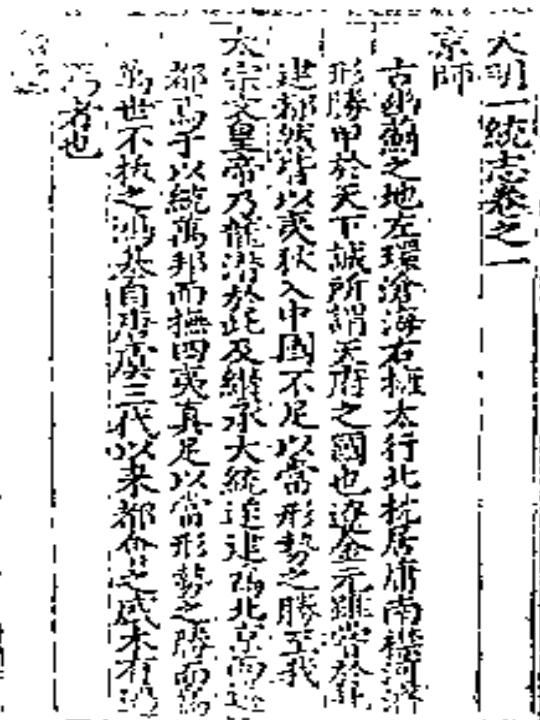 大明一統志卷之一
京師
古幽薊之地左環滄海右擁太行北枕居庸南襟河濟
形勝甲於天下誠所謂天府之國也遼金元雖嘗於此
建都然皆以夷狄入中國不足以當形勢之勝至我
太宗文皇帝乃龍潛於此及繼承大統遂建為北京而遷
都焉于以統萬邦而撫四夷真足以當形勢之勝而為
萬世不拔之鴻基自唐虞三代以来都會之盛未有過
焉者也